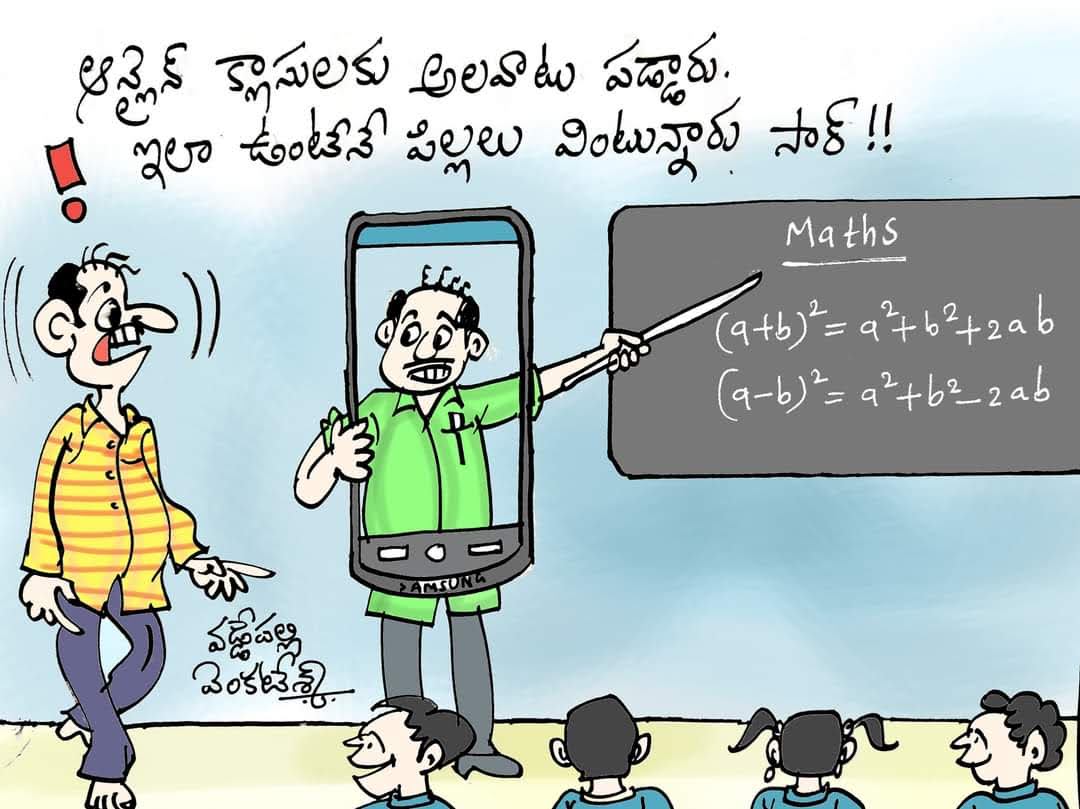 ఆన్లైన్ క్లాసులకు అలవాటు పడ్డారు.
ఇలా ఉంటేనే పిల్లలు వింటున్నారు సార్!!
Maths
(a+b)²= a²+b²+2ab
(a-b)²= a²+b²-2ab
SAMSUNG
వడ్డేపల్లి
వెంకటేశ్